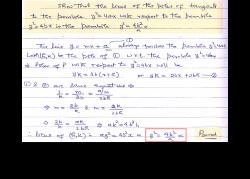 Show that the locus of the poles of tangents
to the parabola y² = 4ax with respect to the parabola
y² = 4bx is the parabola y² = 4b²/a x
The line y = mx + a/m ① always touches the parabola y² = 4ax
Let (h, k) be the pole of ① w.r.t. the parabola y² = 4bx
⇒ Polar of P with respect to y² = 4bx will be
yk = 2b(x+h) or yk = 2bx + 2bh — ②
① & ② are same equations ⇒
1/k = m/2b = a/m/2bh
⇒ m = 2b/k & m = ak/2bh
⇒ 2b/k = ak/2bh ⇒ ak² = 4b²h
∴ locus of (h, k) is ay² = 4b²x ⇒ y² = 4b²/a x Proved